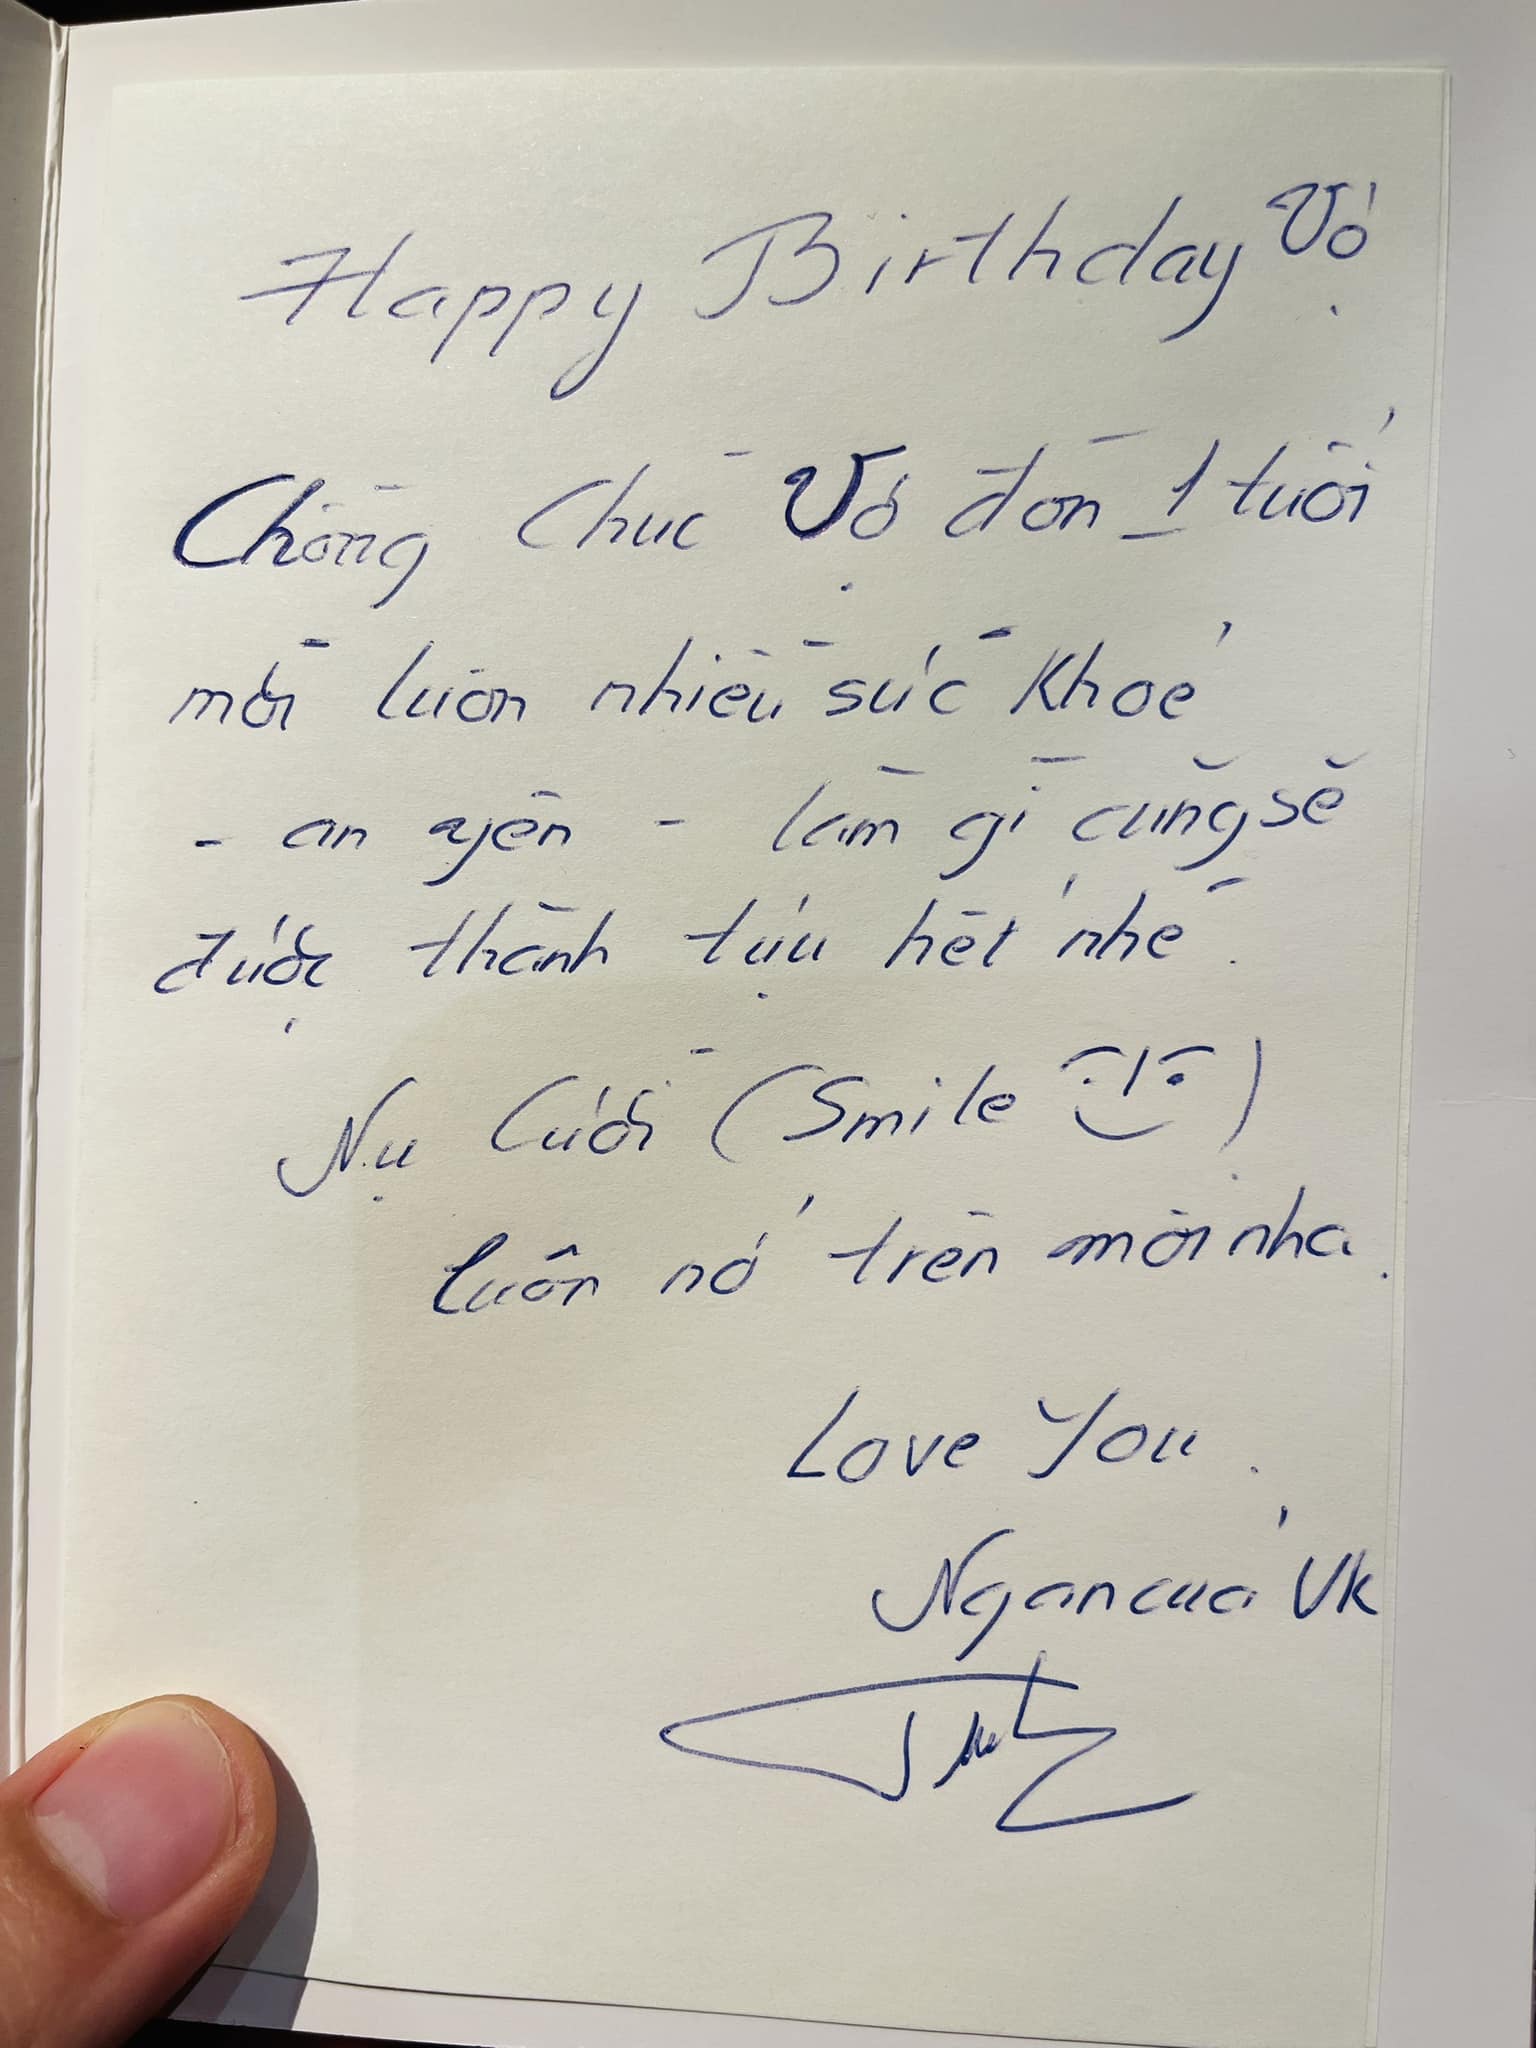 Happy Birthday Vợ
Chồng Chúc Vợ đón 1 tuổi
mới luôn nhiều sức khoẻ
- an yên - làm gì cũng sẽ
được thành tựu hết nhé.
Nụ Cười (Smile )
luôn nở trên môi nha.
Love You.
Ngan của Vk